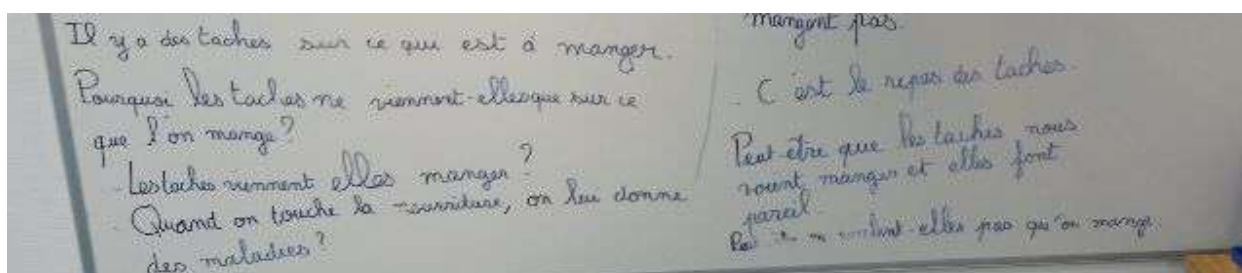 Il y a des taches sur ce qui est à manger.
Pourquoi les taches ne viennent-elles que sur ce
que l'on mange?
. Les taches viennent elles manger?
. Quand on touche la nourriture, on leu donne
des maladies?
mangent pas.
. C'est le repas des taches.
Peut être que les taches nous
voient manger et elles font
pareil.
elles pas qu'on mange.